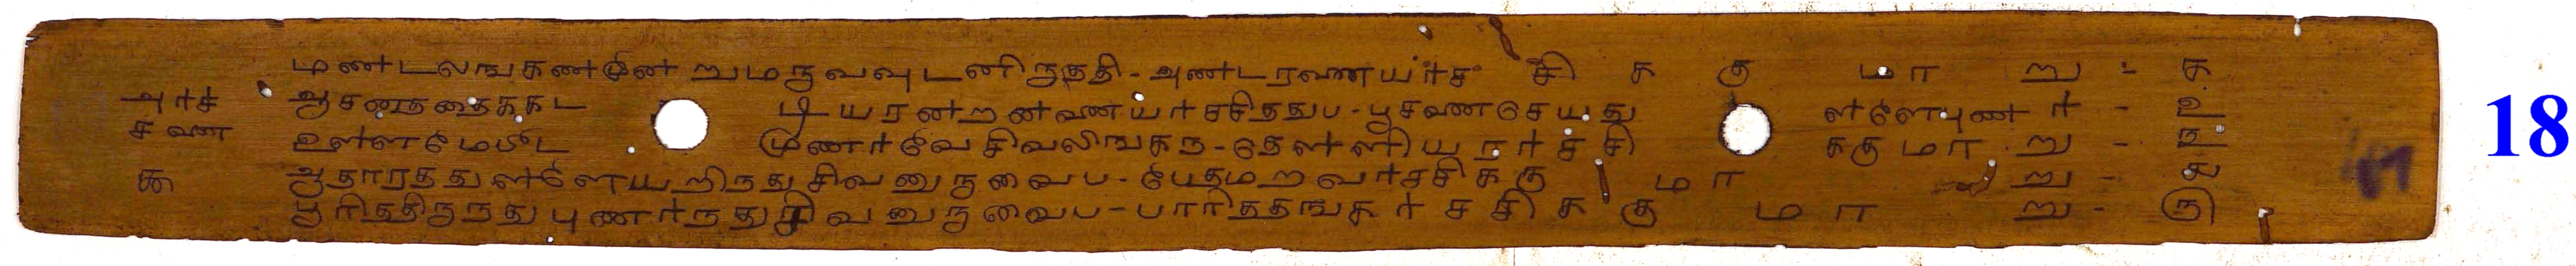 மணடலஙகணமூன றுமருவவுடனிறுததி - அணடரனைய ர்ச சி க கு மா று - க
அர்ச ஆசனத்தைககட டியரனறனைய ர்சசிததுப - பூசனைசெயது ளளேயுணர் - உ
சனை உளளமேபீட முணர்வே சிவலிஙகந - தெளளிய ரர்ச்சி ககுமா று - ந
௬ ஆதாரததுளளேயறிநதுசிவனுருவைப - பேதமறவர்சசிககு மா று - ச
பூரிததிருநதுபுணர்நதுசிவனுருவைப - பாரிததஙகர் சசிககு மா று - ரு
18